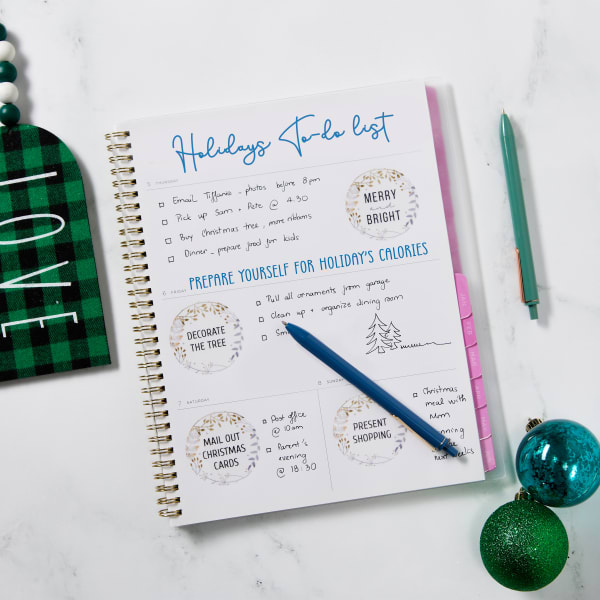 LOVE
Holidays To-do list
5 THURSDAY
Email Tiffanie - photos before 8pm
Pick up Sam + Pete @ 4.30
Buy Christmas tree, more ribbons
Dinner - prepare food for kids
MERRY
and
BRIGHT
PREPARE YOURSELF FOR HOLIDAY'S CALORIES
6 FRIDAY
DECORATE
THE TREE
Pull all ornaments from garage
Clean up + organize dining room
7 SATURDAY
MAIL OUT
CHRISTMAS
CARDS
Post office
@ 10am
Parent's
evening
@ 18:30
8 SUNDAY
PRESENT
SHOPPING
Christmas
meal with
Mom